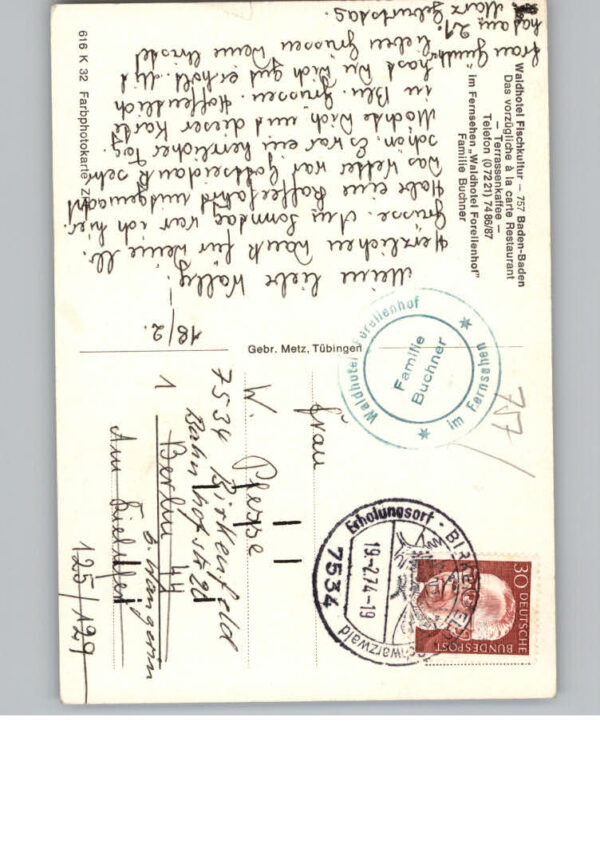 Waldhotel Fischkultur – 757 Baden-Baden
Das vorzügliche à la carte Restaurant
– Terrassenkaffee –
Telefon (07221) 7486/87
im Fernsehen „Waldhotel Forellenhof"
Familie Buchner
18/2.
Meine liebe Wally!
Herzlichen Dank für Deine lb.
Grüsse. Am Sonntag war ich hier
Habe eine Kaffeefahrt mitgemacht
Das Wetter war Gottseidank sehr
schön. Es war ein herrlicher Tag.
Möchte Dich mit dieser Karte
in Bln. Grüssen. Hoffentlich
hast Du Dich gut erholt. Mit
lieben Grüssen Deine Christel
Frau
hat am 21.
März
Geburtstag.
616 K 32 Farbphotokarte
Gebr. Metz, Tübingen
Waldhotel Forellenhof
Familie
Buchner
im Fernsehen
757
DEUTSCHE
BUNDESPOST
30
Erholungsort · BIRKENFELD
19.-2.74-19
7534
Schwarzwald
Frau
W. Plesse
7534 Birkenfeld
Bahnhofstr 2d
1 Berlin 44
b. Wangerin
Am
125/129